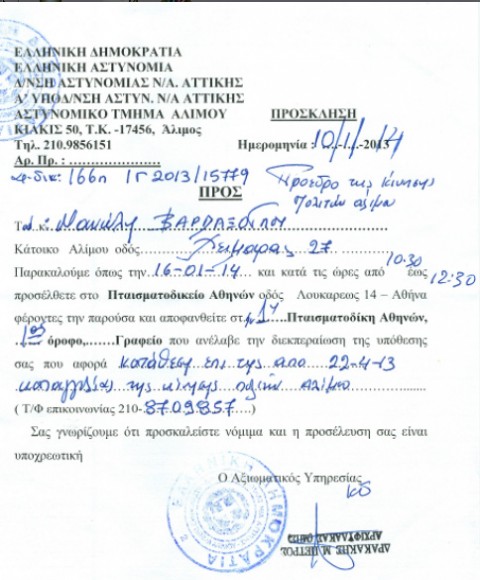 ΕΛΛΗΝΙΚΗ ΔΗΜΟΚΡΑΤΙΑ
ΕΛΛΗΝΙΚΗ ΑΣΤΥΝΟΜΙΑ
Δ/ΝΣΗ ΑΣΤΥΝΟΜΙΑΣ Ν/Α. ΑΤΤΙΚΗΣ
Α΄ ΥΠΟΔ/ΝΣΗ ΑΣΤΥΝ. Ν/Α ΑΤΤΙΚΗΣ
ΑΣΤΥΝΟΜΙΚΟ ΤΜΗΜΑ ΑΛΙΜΟΥ ΠΡΟΣΚΛΗΣΗ
ΚΙΛΚΙΣ 50, Τ.Κ. -17456, Άλιμος
Τηλ. 210.9856151 Ημερομηνία : 10/1/-2013 14
Αρ. Πρ. : .....................
166π Γ 2013/15779 Πρόεδρο της κίνησης
πολιτών αλίμου
ΠΡΟΣ
Μανώλη ΒΑΡΔΑΞΟΓΛΟΥ
Κάτοικο Αλίμου οδός Χειμάρας 27
Παρακαλούμε όπως την 16-01-14 και κατά τις ώρες από 10:30 έως 12:30
προσέλθετε στο Πταισματοδικείο Αθηνών οδός Λουκαρεως 14 – Αθήνα
φέροντες την παρούσα και αποφανθείτε στ 17 Πταισματοδίκη Αθηνών,
1ος όροφο,.......Γραφείο που ανέλαβε την διεκπεραίωση της υπόθεσης
σας που αφορά κατάθεση επι της απο 22-4-13
καταγγελίας της κίνησης πολιτών αλίμου
( Τ/Φ επικοινωνίας 210-8709857....)
Σας γνωρίζουμε ότι προσκαλείστε νόμιμα και η προσέλευση σας είναι
υποχρεωτική
Ο Αξιωματικός Υπηρεσίας
ΔΡΑΚΑΚΗΣ Μ. ΠΕΤΡΟΣ
ΑΡΧΙΦΥΛΑΚΑΣ
ΕΛΛΗΝΙΚΗ ΔΗΜΟΚΡΑΤΙΑ